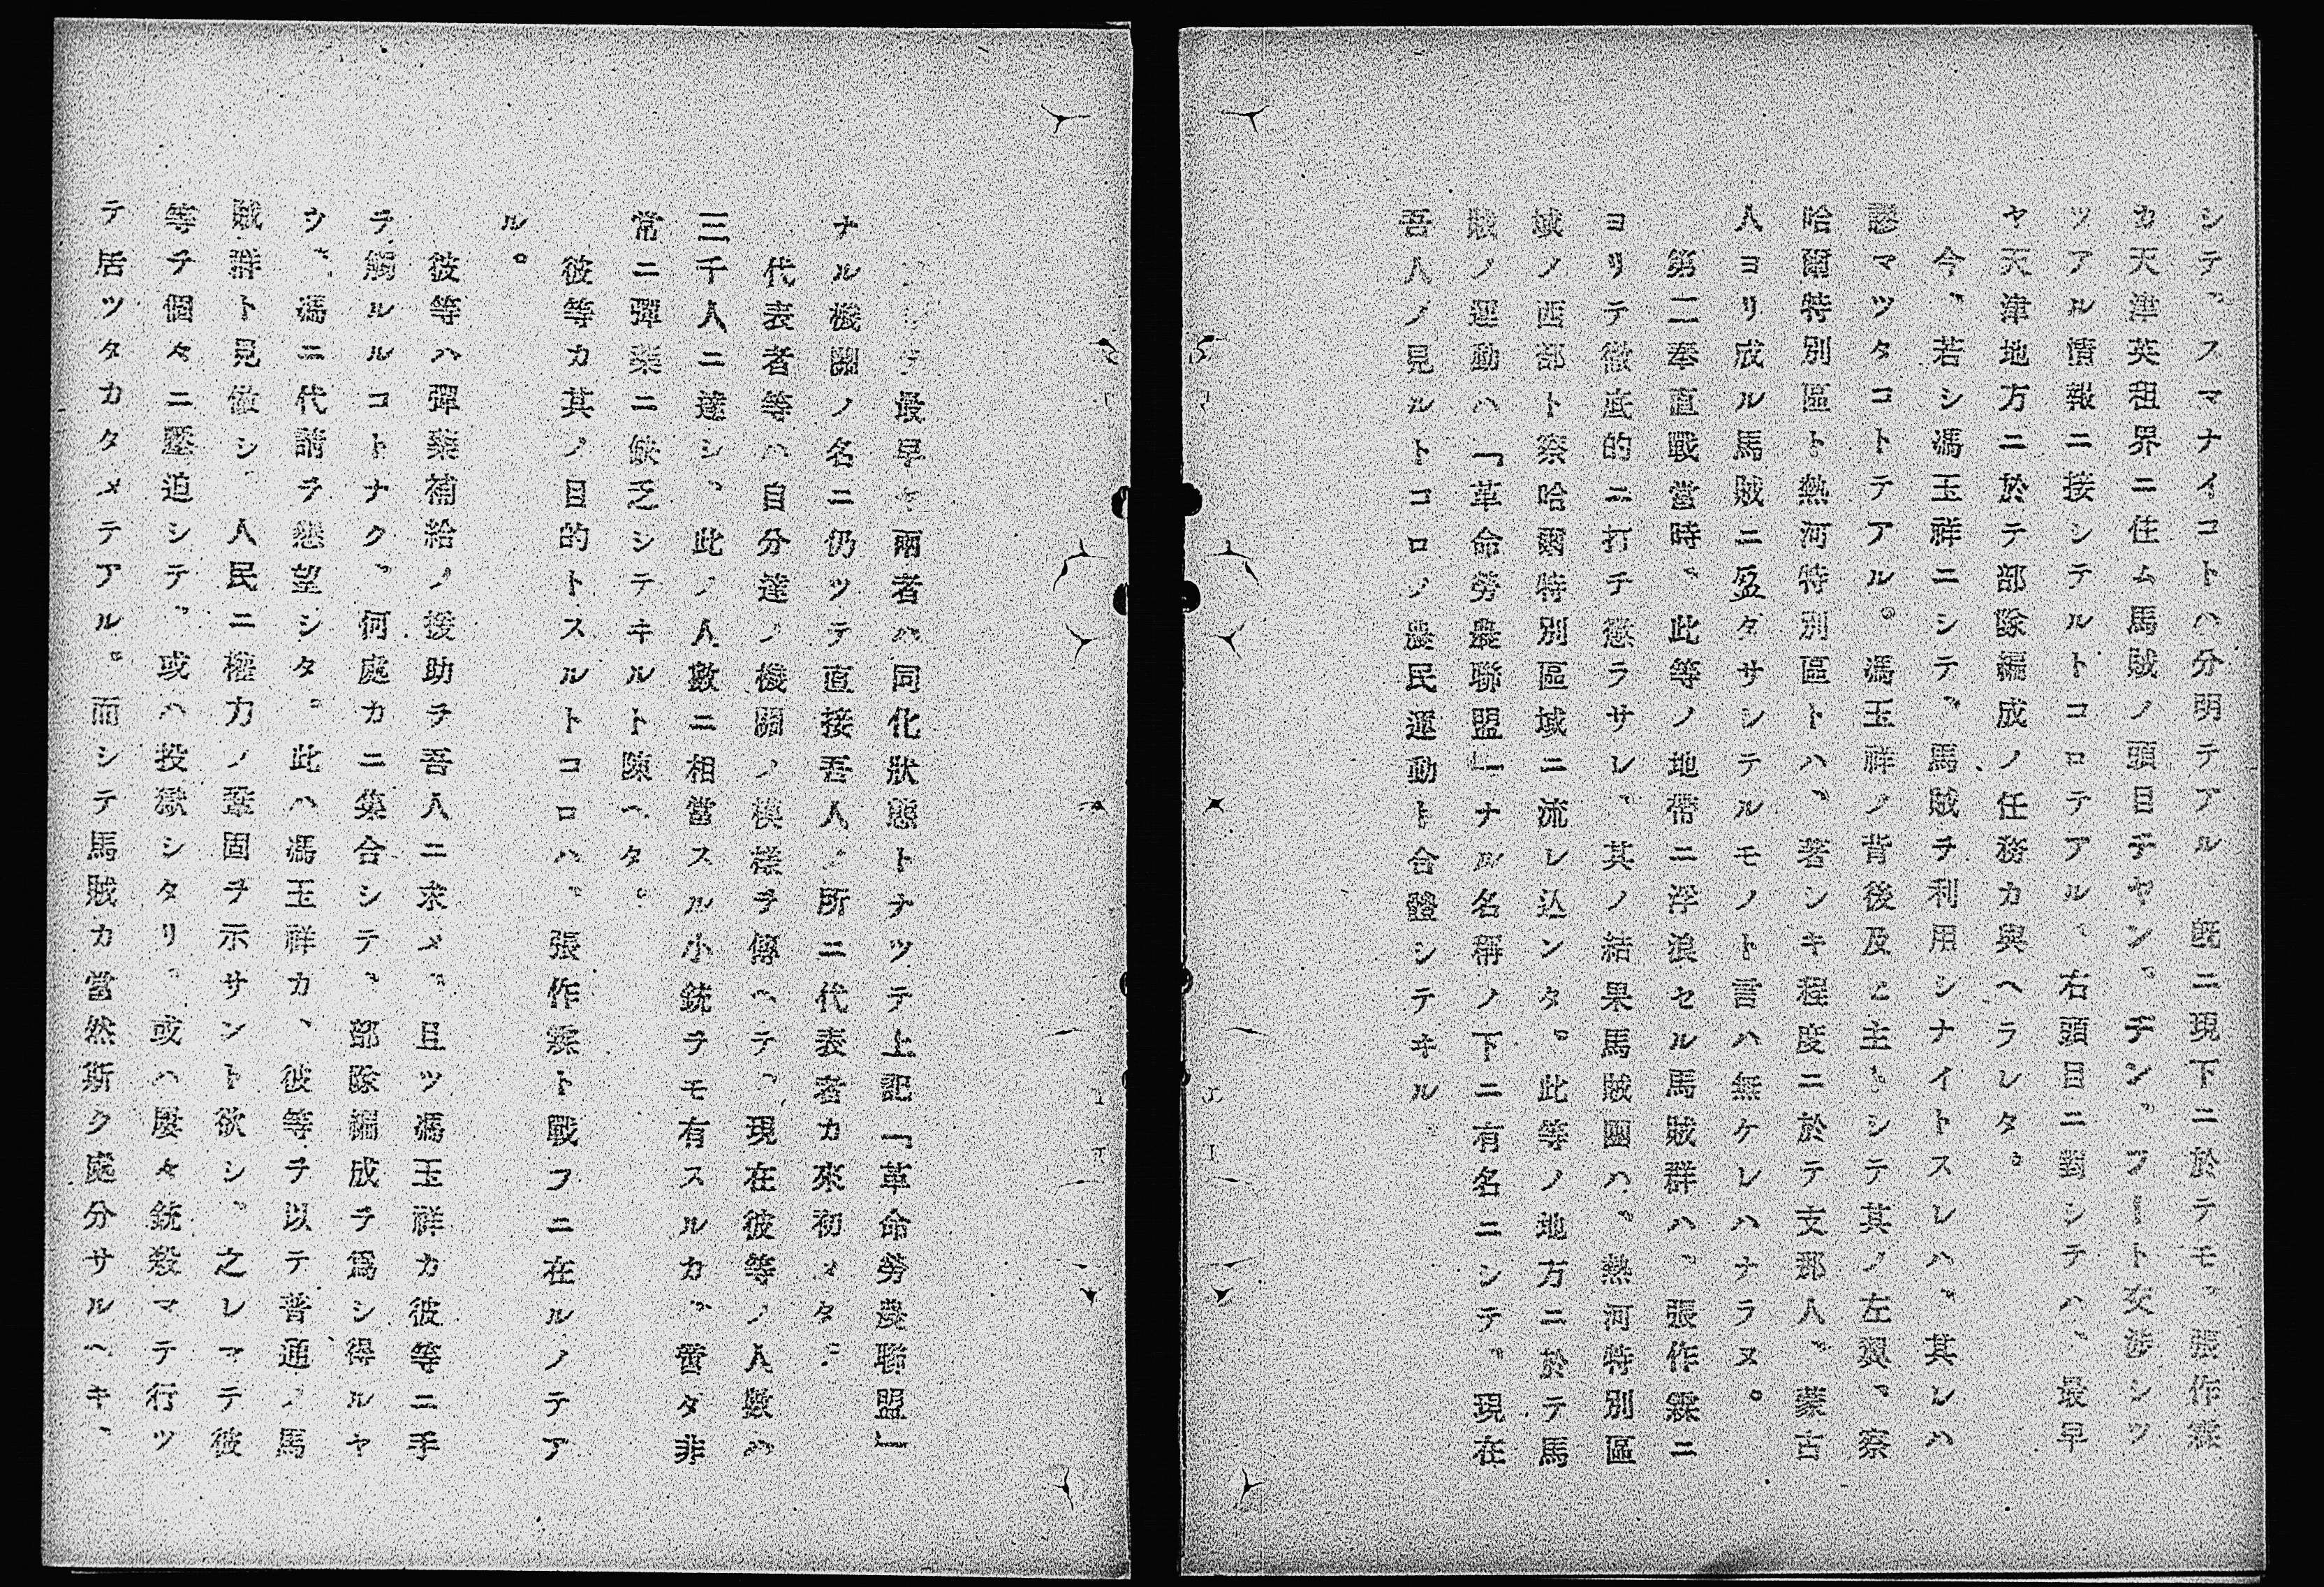 シテ、スマナイコトハ分明テアル、既ニ現下ニ於テモ、張作霖
カ天津英租界ニ住ム馬賊ノ頭目テヤン。デン。フート交渉シツ
ツアル情報ニ接シテルトコロテアル、右頭目ニ對シテハ、最早
ヤ天津地方ニ於テ部隊編成ノ任務カ與ヘラレタ。
今、若シ馮玉祥ニシテ、馬賊ヲ利用シナイトスレハ、其レハ
謬マツタコトテアル。馮玉祥ノ背後及ヒ主トシテ其ノ左翼、察
哈爾特別區ト熱河特別區トハ、著シキ程度ニ於テ支那人、蒙古
人ヨリ成ル馬賊ニ盈ダサシテルモノト言ハ無ケレハナラヌ。
第二奉直戰當時、此等ノ地帶ニ浮浪セル馬賊群ハ、張作霖ニ
ヨリテ徹底的ニ打テ懲ラサレ、其ノ結果馬賊團ハ、熱河特別區
域ノ西部ト察哈爾特別區域ニ流レ込ンタ。此等ノ地方ニ於テ馬
賊ノ運動ハ「革命勞農聯盟」ナル名稱ノ下ニ有名ニシテ、現在
吾人ノ見ルトコロノ農民運動ト合體シテキル。
テ最早ヤ兩者ハ同化狀態トナツテ上記「革命勞農聯盟」
ナル機關ノ名ニ仍ツテ直接吾人ノ所ニ代表者カ來初メタ
代表者等ハ自分達ノ機關ノ模樣ヲ傳ヘテ、現在彼等ノ人數ハ
三千人ニ達シ、此ノ人數ニ相當スル小銃ヲモ有スルカ、啻ダ非
常ニ彈藥ニ缺乏シテキルト陳ヘタ。
彼等カ其ノ目的トスルトコロハ、張作霖ト戰フニ在ルノテア
ル。
彼等ハ彈藥補給ノ援助ヲ吾人ニ求メ、且ツ馮玉祥カ彼等ニ手
ヲ觸ルルコトナク、何處カニ集合シテ、部隊編成ヲ爲シ得ルヤ
ウ、馮ニ代請ヲ懇望シタ。此ハ馮玉祥カ、彼等ヲ以テ普通ノ馬
賊群ト見做シ、人民ニ權力ノ鞏固ヲ示サント欲シ、之レマテ彼
等ヲ個々ニ壓迫シテ、或ハ投獄シタリ、或ハ屡々銃殺マテ行ツ
テ居ツタカタメテアル。而シテ馬賊カ當然斯ク處分サルヘキ、